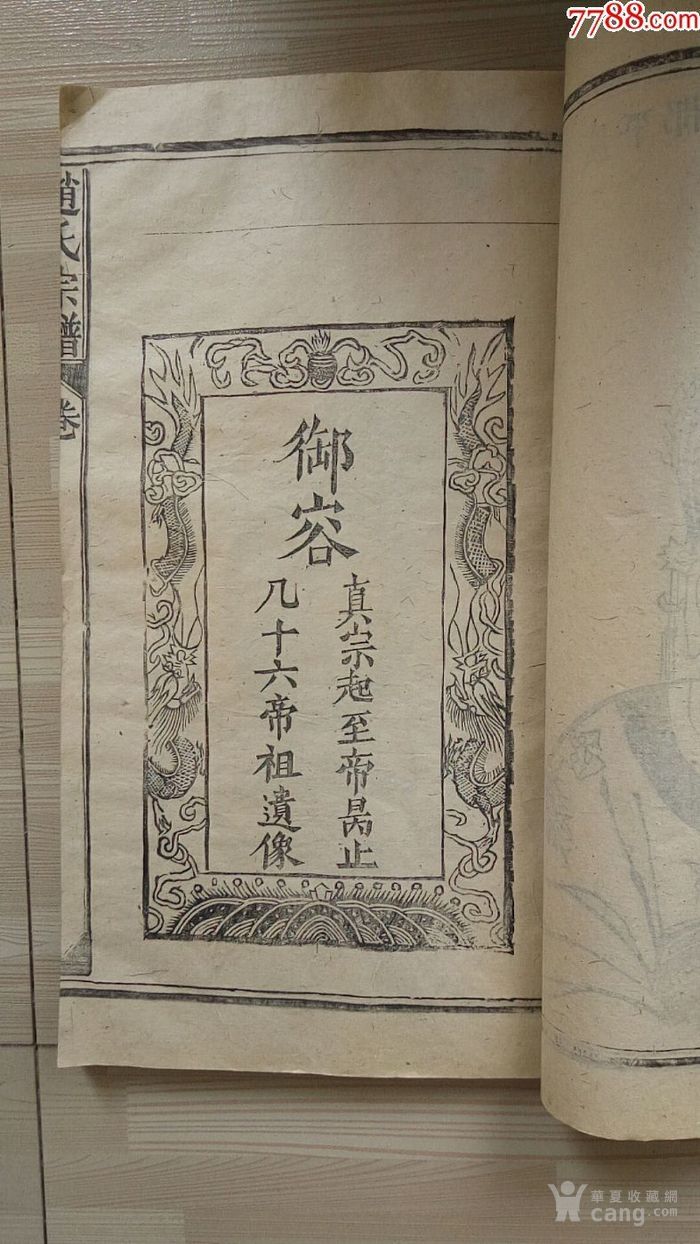 7788.com
趙氏宗譜
卷
御容
真宗起至帝昺止
几十六帝祖遺像
華夏收藏網
cang.com